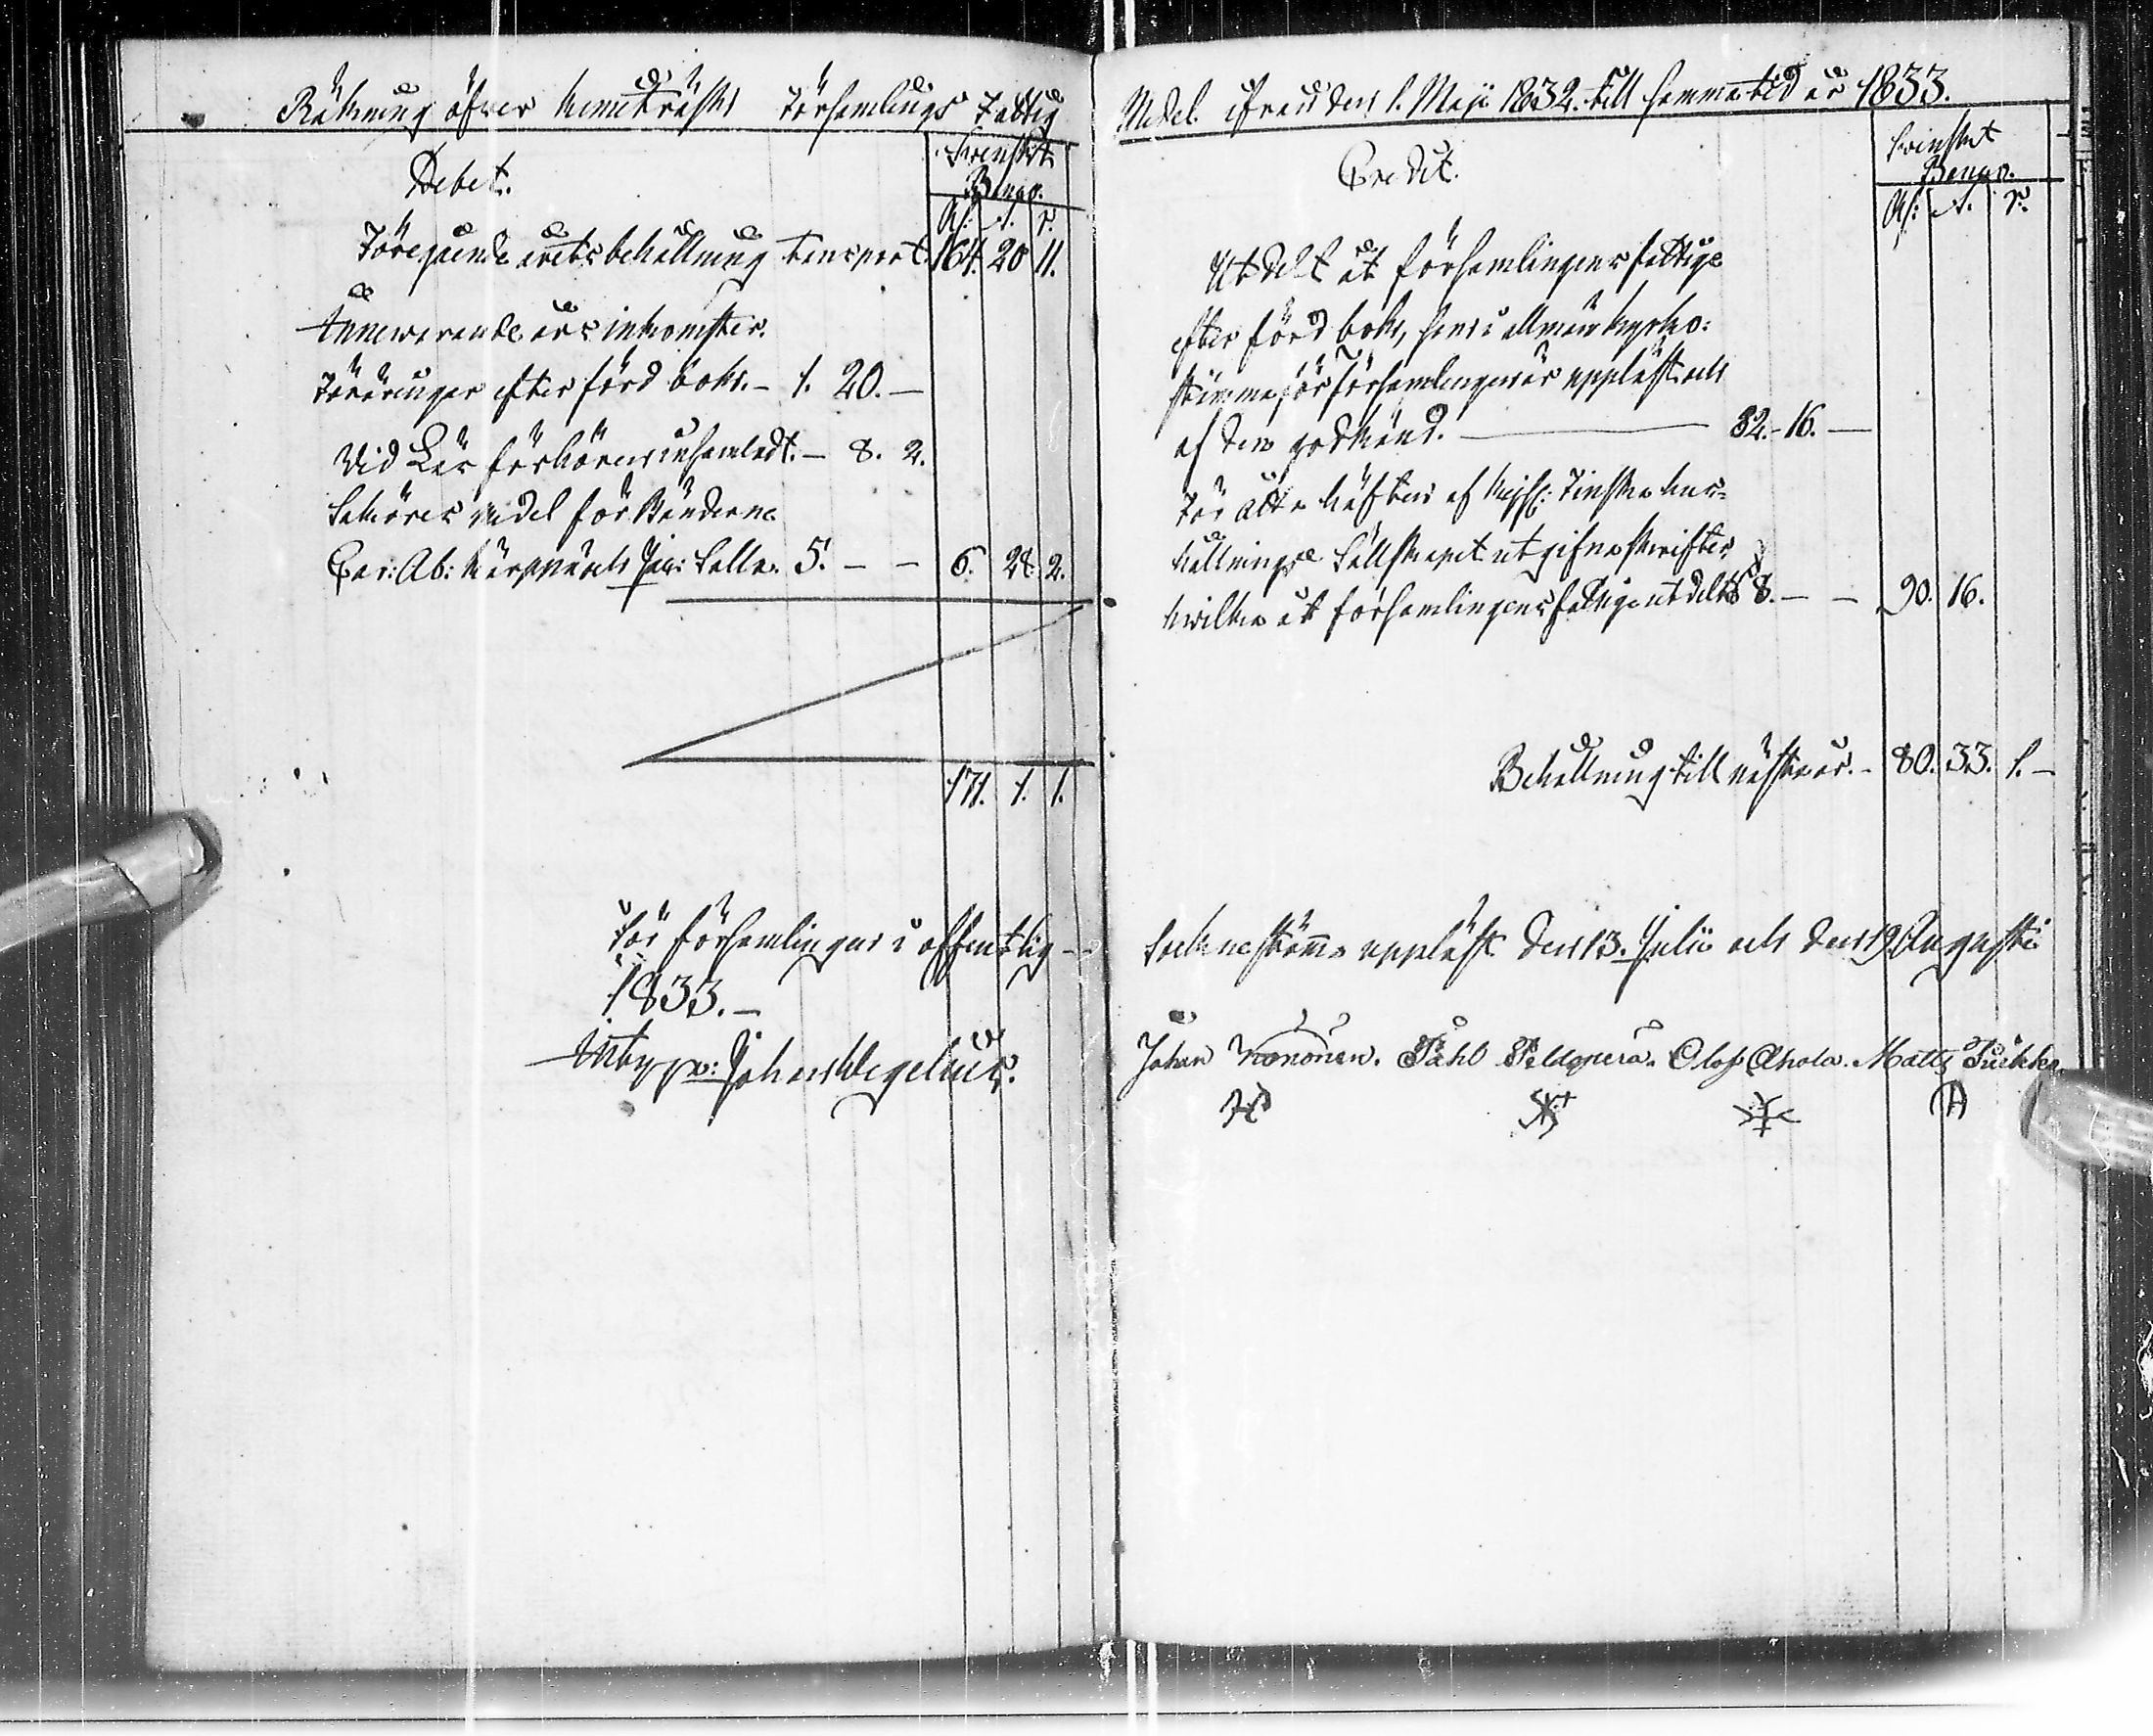 Räkning öfver Kemiträsks Församlings Fattig
Debet.
Svenskt
Banco.
Rs: s. r.
Föregående årets behållning transport. 164. 20 11.
Innewarande års inkomster.
Föräringar efter förd bok. - 1. 20. -
Vid Läs förhören insamladt. - 8. 2.
Sakören medel för Bönderne
5. - - 6. 28. 2.
171. 1. 1.
För församlingen i offentlig -
1833. -
Johan Wegelius.
Medel ifrån den 1. Maji 1832. till samma tid år 1833.
Credit.
Svenskt
Banco.
Rs: s. r.
Utdelt åt församlingens fattige
efter förd bok, som i allmän kyrko-
stämma för församlingen är uppläst och
af den godkänd. - 82. - 16. -
För åtta häften af Kejs: Finska hus-
hållnings Sällskapet utgifna skrifter,
hvilka åt församlingens fattige utdelts 8. - - 90. 16.
Behållning till nästa år. - 80. 33. 1. -
sockne stämma uppläst den 13. Julii och den 19 Augusti
Johan Kononen. Påhl Peldoperä. Olof Ahola. Matts